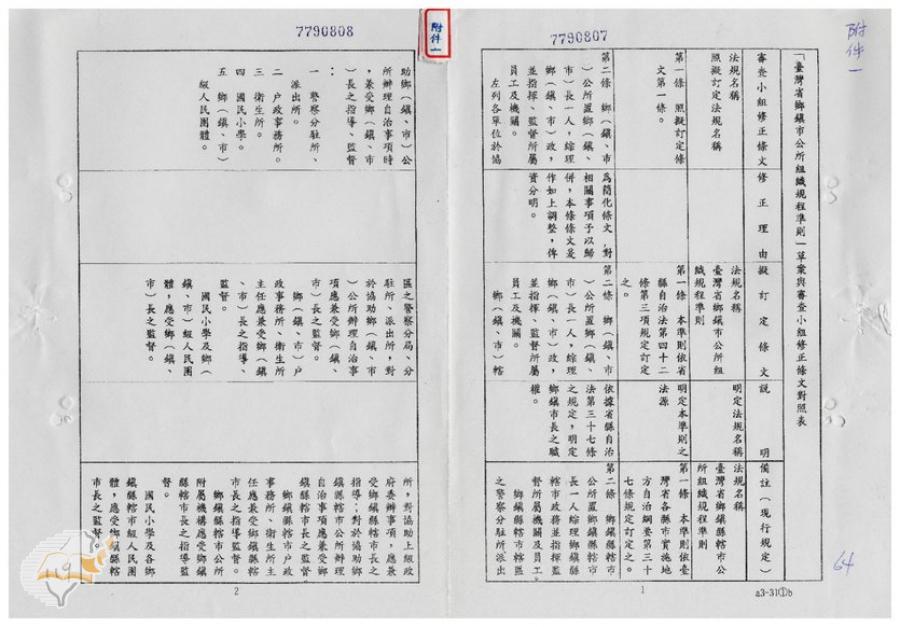 附件一
7790807
附件一
「臺灣省鄉鎮市公所組織規程準則」草案與審查小組修正條文對照表
審查小組修正條文
法規名稱
照擬訂定法規名稱
第一條 照擬訂定條
文第一條。
第二條 鄉(鎮、市
)公所置鄉(鎮、
市)長一人,綜理
鄉(鎮、市)政,
並指揮、監督所屬
員工及機關。
左列各單位於協
修正理由
為簡化條文,對
相關事項予以歸
併,本條條文爰
作如上調整,俾
資分明。
擬訂定條文
法規名稱
臺灣省鄉鎮市公所組
織規程準則
第一條 本準則依省
縣自治法第四十二
條第三項規定訂定
之。
第二條 鄉(鎮、市
)公所置鄉(鎮、
市)長一人,綜理
鄉(鎮、市)政,
並指揮、監督所屬
員工及機關。
鄉(鎮、市)轄
說明
明定法規名稱
明定本準則之
法源
依據省縣自治
法第三十七條
之規定,明定
鄉鎮市長之職
權。
備註(現行規定)
法規名稱
臺灣省鄉鎮縣轄市公
所組織規程準則
第一條 本準則依臺
灣省各縣市實施地
方自治綱要第三十
七條規定訂定之。
第二條 鄉鎮縣轄市
公所置鄉鎮縣轄市
長一人綜理鄉鎮縣
轄市政務並指揮監
督所屬機關及員工
鄉鎮縣轄市轄區
之警察分駐所派出
1
a3-31①b
64
7790808
助鄉(鎮、市)公
所辦理自治事項時
,兼受鄉(鎮、市
)長之指導、監督
:
一 警察分駐所、
派出所。
二 戶政事務所。
三 衛生所。
四 國民小學。
五 鄉(鎮、市)
級人民團體。
區之警察分局、分
駐所、派出所,對
於協助鄉(鎮、市
)公所辦理自治事
項應兼受鄉(鎮、
市)長之監督。
鄉(鎮、市)戶
政事務所、衛生所
主任應兼受鄉(鎮
、市)長之指導、
監督。
國民小學及鄉(
鎮、市)級人民團
體,應受鄉(鎮、
市)長之監督。
所,對協助上級政
府委辦事項,應兼
受鄉鎮縣轄市長之
指導;對於協助鄉
鎮縣轄市公所辦理
自治事項應兼受鄉
鎮縣轄市長之監督
鄉鎮縣轄市戶政
事務所、衛生所主
任應兼受鄉鎮縣轄
市長之指導監督。
鄉鎮縣轄市公所
附屬機構應受鄉鎮
縣轄市長之指導監
督。
國民小學及各鄉
鎮縣轄市級人民團
體,應受鄉鎮縣轄
市長之監督。
2